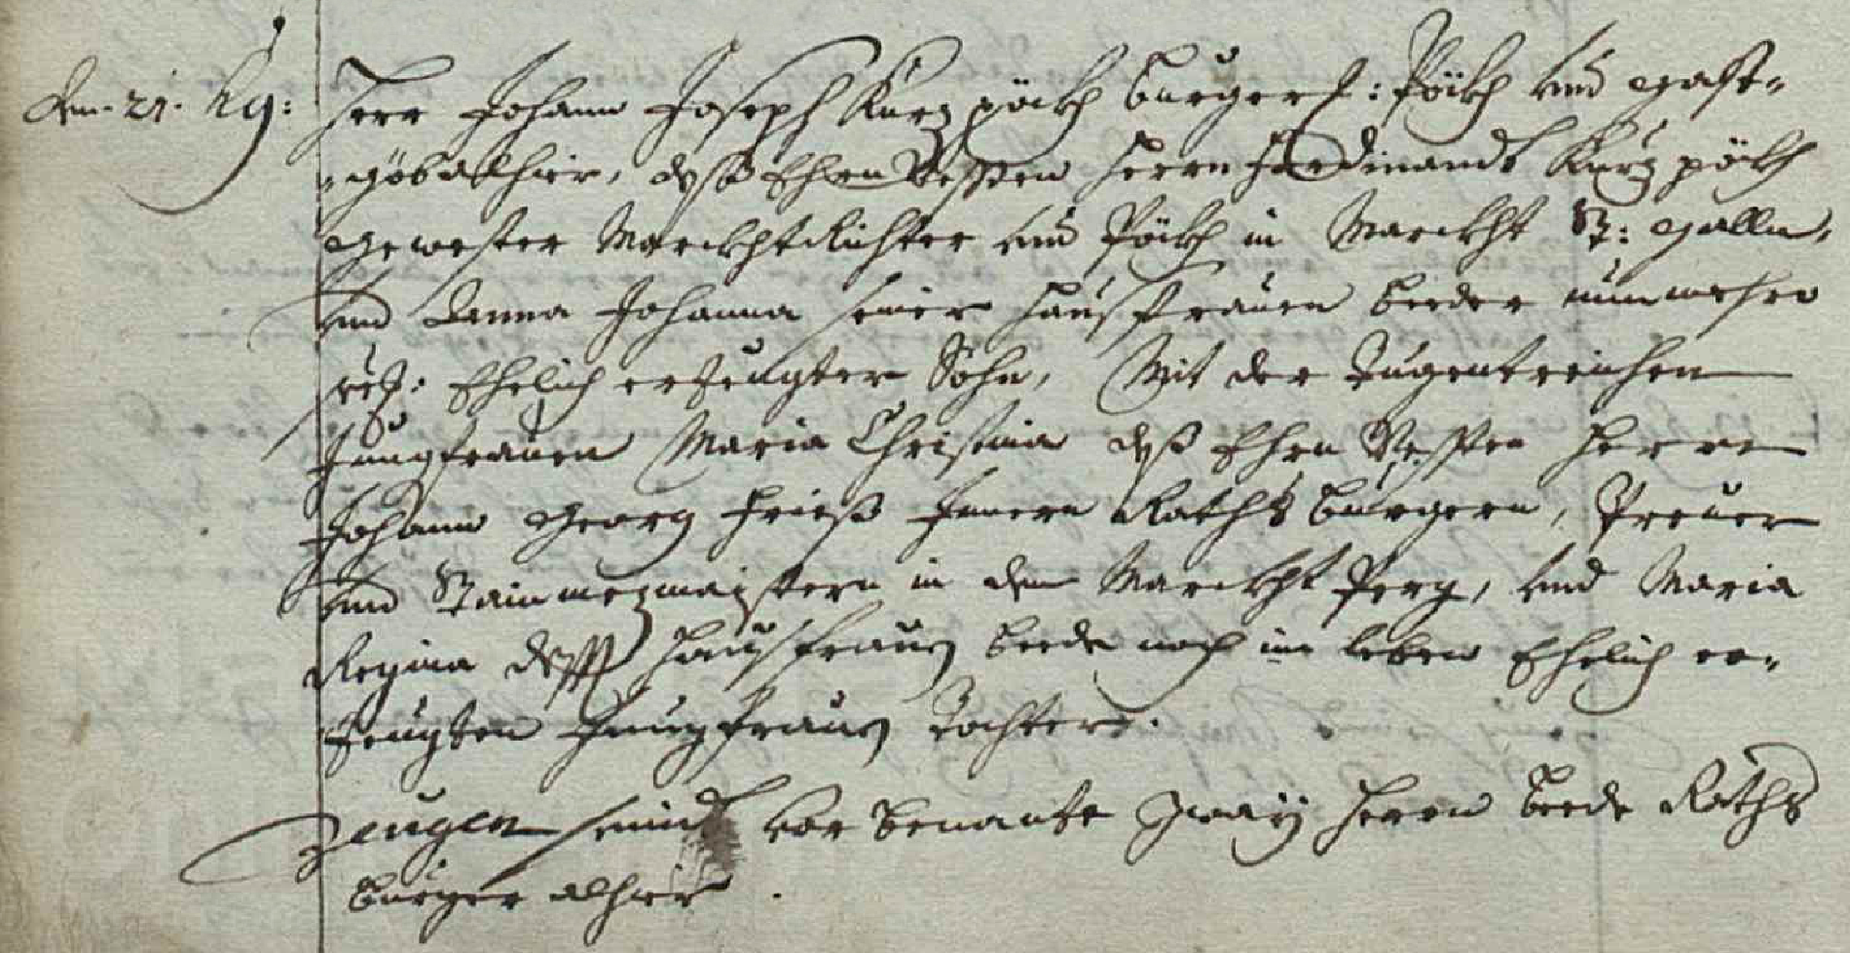 Den 21. dg:
Herr Johann Joseph Kurzpöckh burgerl: Pöckh und Gast-
göb alhier, deß Ehrn Vessten Herrn Ferdinandt Kurzpöckh
gewester Marckht Richter und Pöckh in Marckht St: Gallen,
und Anna Johanna seiner Haußfrauen beeder nunmehro
seel: Ehelich erzeugter Sohn, Mit der Tugentreichen
Jungfrauen Maria Christina deß Ehrn Vessten Herrn
Johann Georg Frieß Innern Raths burgern, Preuer
und Stainmezmaistern in dem Marckht Perg, und Maria
Regina dessen Haußfrauen beede noch im leben Ehelich er-
zeugten Jungfrauen Tochter.
Zeugen seind vor benante zway Herrn beede Raths
burger alhier.